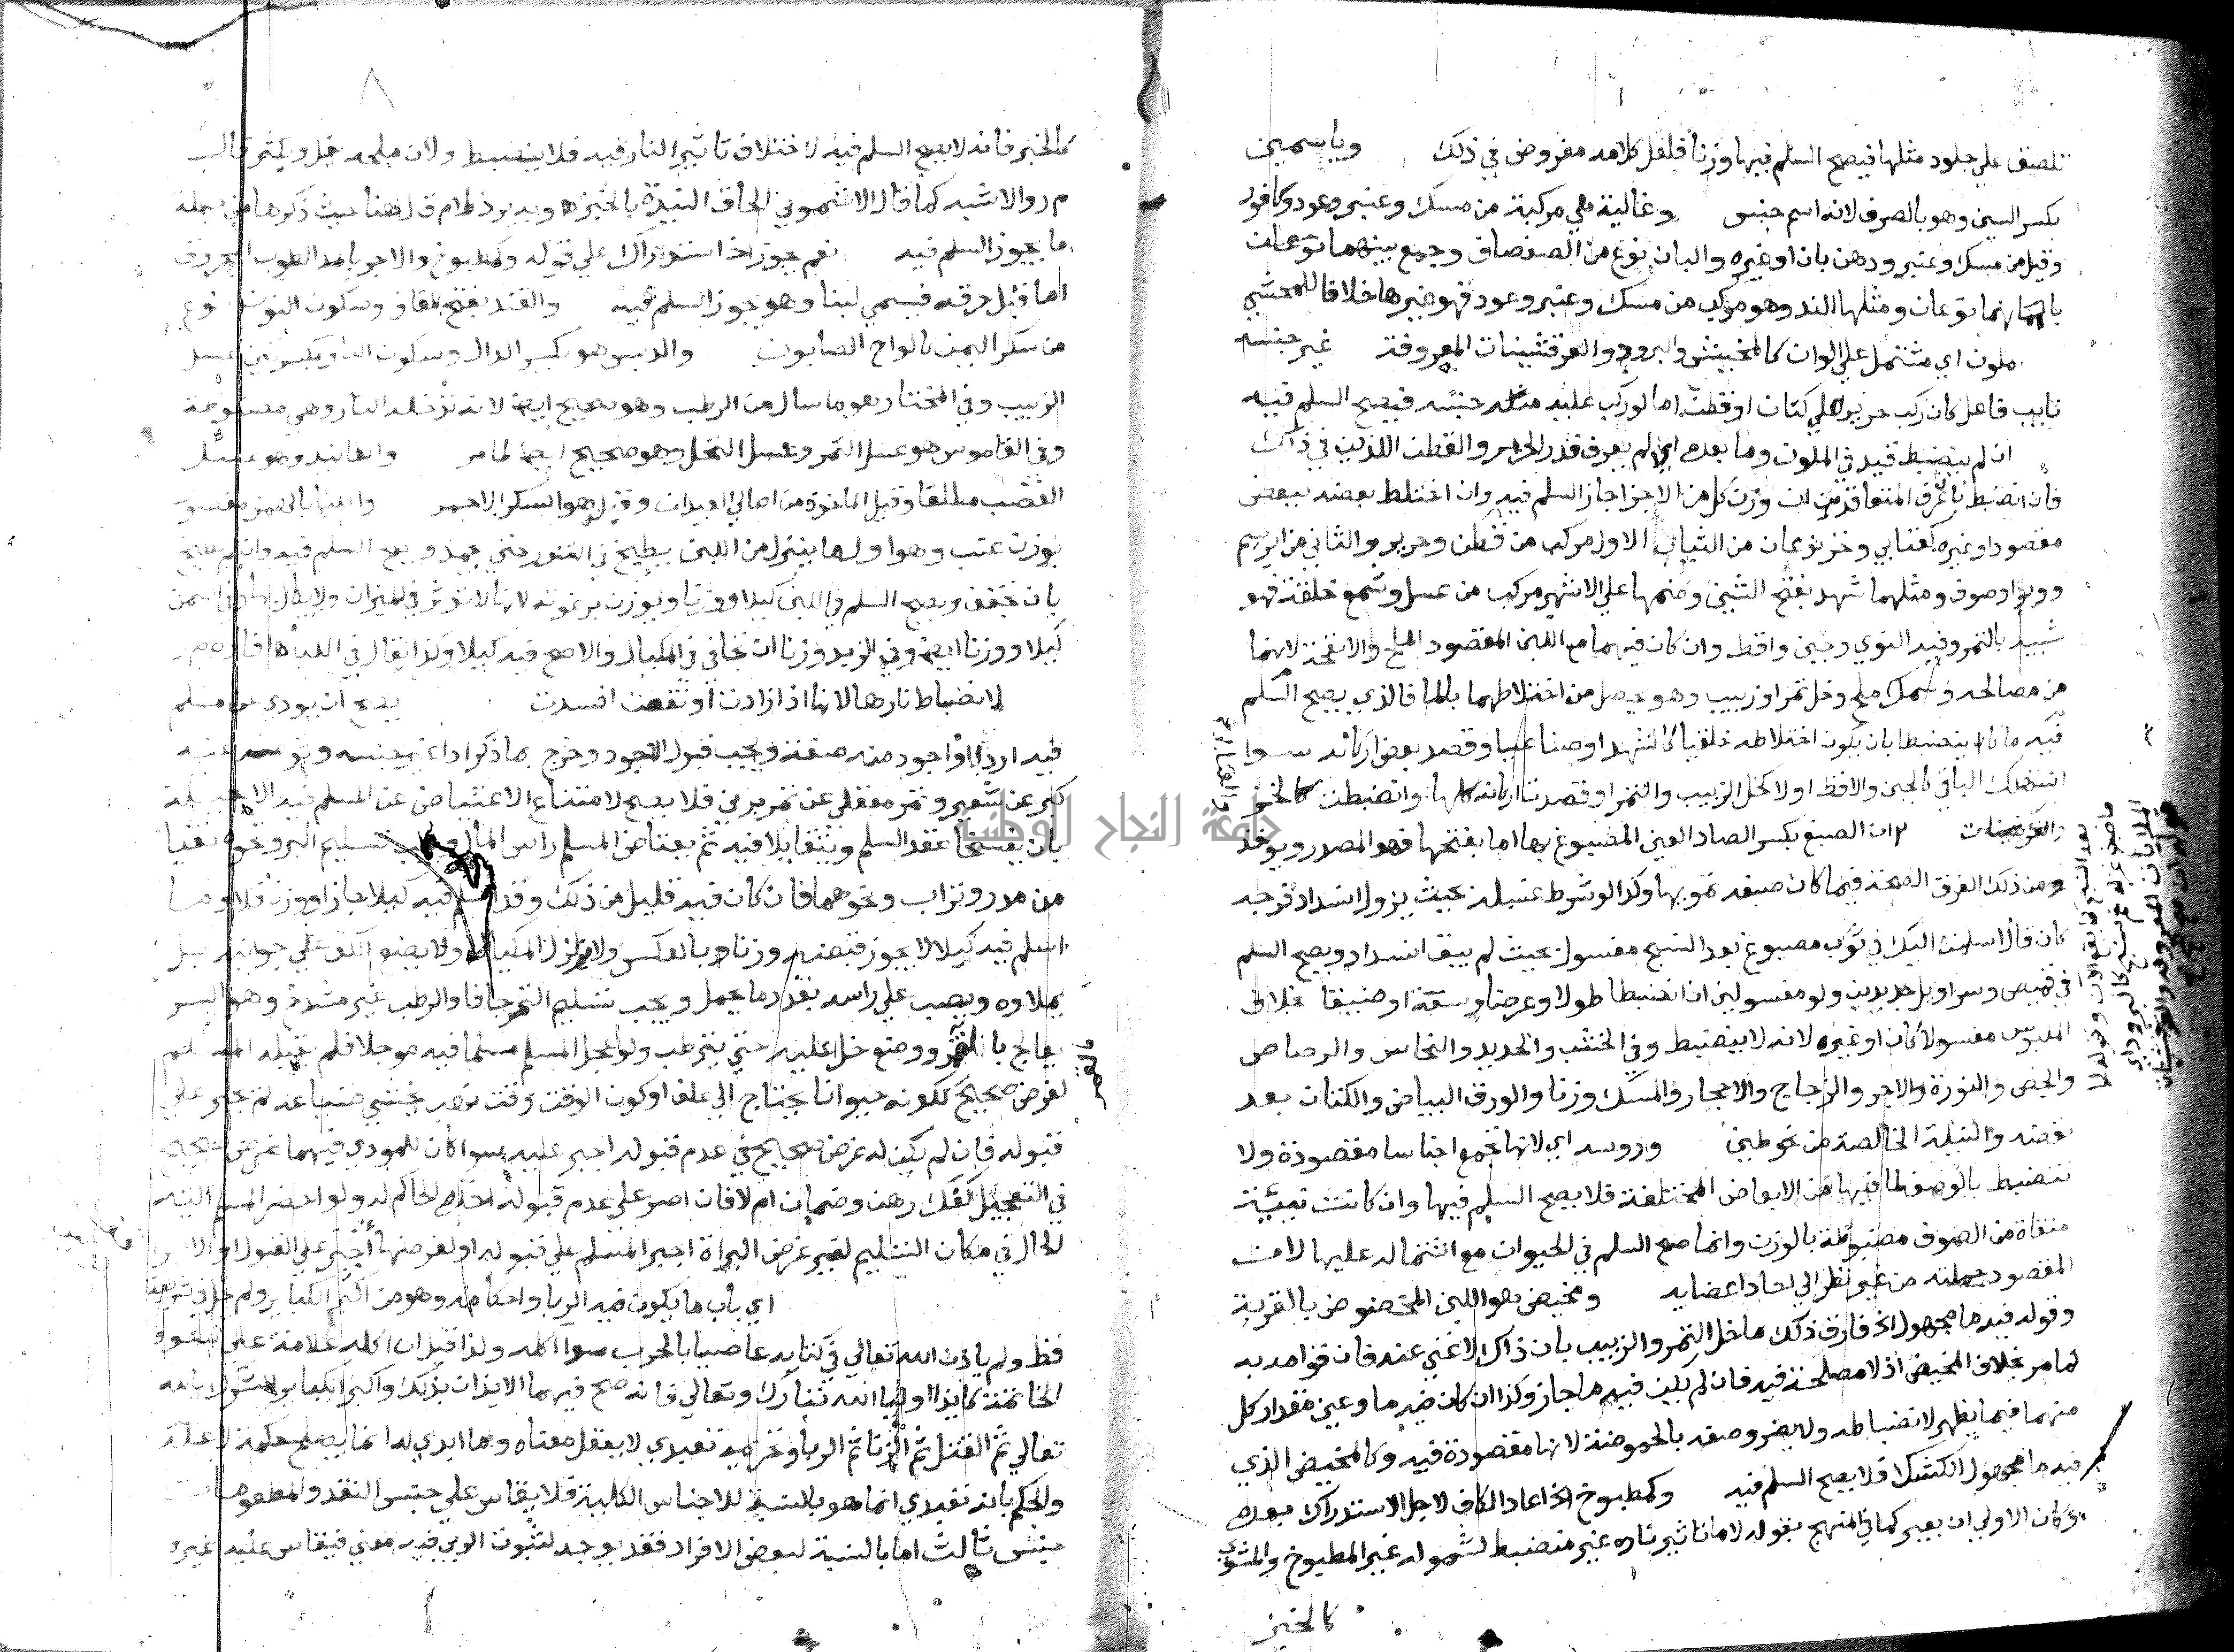 تلصق علي جلود مثلها فيصح السلم فيها وزنا فلعل كلامه مفروض في ذلك وياسمين
بكسر السين وهو بالصرف لانه اسم جنس وغالية هي مركبة من مسك وعنبر وعود وكافور
وقيل من مسك وعنبر ودهن بان او غيره والبان نوع من الصفصاف وجمع بينهما
بانهما نوعان ومثلها الند وهو مركب من مسك وعنبر وعود فهو غيرها خلافا للمحشي
ملون اي مشتمل علي الوان كالمخيش والبرود المعروفة غير جنسه
نايب فاعل كان ركب حرير علي كتان او قطن اما لو ركب عليه مثله جنسه فيصح السلم فيه
ان لم ينضبط قيد في الملون وما بعده اي لم يعرف قدر الحرير والقطن اللذين في ذلك
فان انضبط بان عرف المتعاقدين وزن كل من الاجزا جاز السلم فيه وان اختلط بعضه ببعض
مقصود او غيره كعتابي وخز نوعان من الثياب الاول مركب من قطن وحرير والثاني من ابريسم
ووبر او صوف ومثلهما شهد بفتح الشين وضمها علي الاشهر مركب من عسل وشمع خلقة فهو
شبيه بالتمر وفيه النوي وجبن واقط وان كان فيهما مع اللبن المقصود الملح والانفحة لانهما
من مصالحه وسمك ملح وخل تمر او زبيب وهو يحصل من اختلاطهما بالما فالذي يصح السلم
فيه ما كان ينضبط بان يكون اختلاطه خلقيا كالشهد او صناعيا وقصد بعض اركانه سوا
استهلك الباقي كالجبن والاقط اولا كخل الزبيب والتمر او قصدت اركانه كلها وانضبطت كالخز
ان الصبغ بكسر الصاد العين المصبوغ بها اما بفتحها فهو المصدر ويوخذ
ومن ذلك الفرق الصحة فيما كان صبغه تمويها وكذا لو شرط غسله بحيث يزول انسداد فرجه
كان قال اسلمت اليك في ثوب مصبوغ بعد النسج مغسول بحيث لم يبق انسداد ويصح السلم
في قميص وسراويل جديدين ولو مغسولين ان انضبطا طولا وعرضا وسعة او ضيقا بخلاف
الملبوس مغسولا كان او غيره لانه لا ينضبط وفي الخشب والحديد والنحاس والرصاص
والجص والنورة والاجر والزجاج والاحجار والمسك وزنا والورق البياض والكتان بعد
نفضه والنيلة الخالصة من نحو طين وروسه اي لانها تجمع اجناسا مقصودة ولا
تنضبط بالوصف لما فيها من الابعاض المختلفة فلا يصح السلم فيها وان كانت نيئة
منقاة من الصوف مضبوطة بالوزن وانما صح السلم في الحيوان مع اشتماله عليها لان
المقصود جملته من غير نظر الي احاد اعضايه ومخيض هو اللبن المخصوص بالقربة
وقوله فيه ما مجهول اخ فارق ذلك ما خل التمر والزبيب بان ذاك لا غني عنه فان قوامه به
كما مر بخلاف المخيض اذ لا مصلحة فيه فان لم يكن فيه ما جاز وكذا ان كان فيه ما وعين مقدار كل
منهما فيما يظهر لانضباطه ولا يضر وصفه بالحموضة لانها مقصودة فيه وكالمخيض الذي
فيه ما مجهول الكشك فلا يصح السلم فيه وكمطبوخ اخ اعاد الكاف لاجل الاستدراك بعده
وكان الاولي ان يعبر كما في المنهج بقوله لا ما تاثير ناره غير منضبط لشموله غير المطبوخ والمشوي
كالخبز
كالخبز فانه لا يصح السلم فيه لاختلاف تاثير النار فيه فلا ينضبط ولان ملحه يقل ويكثر قال
م ر والاشبه كما قال الاشموني الحاق النيدة بالخبز
ما يجوز السلم فيه نعم يجوز اخ استدراك علي قوله وكمطبوخ والاجر بالمد الطوب المحروق
اما قبل حرقه فيسمي لبنا وهو يجوز السلم فيه والقند بفتح القاف وسكون النون نوع
من سكر اليمن كالواح الصابون والدبس هو بكسر الدال وسكون البا وبكسرتين عسل
الزبيب وفي المختار هو ما سال من الرطب وهو صحيح ايضا لانه تدخله النار وهي مضبوطة
وفي القاموس هو عسل التمر وعسل النحل وهو صحيح ايضا لما مر والفانيد وهو عسل
القصب مطلقا وقيل الماخوذ من اعالي العيدان وقيل هو السكر الاحمر واللبا بالهمز مقصور
بوزن عنب وهو اول ما ينزل من اللبن يطبخ في حتي يجمد ويصح السلم فيه وان لم يطبخ
بان جفف ويصح السلم في اللبن كيلا ووزنا ويوزن برغوته لانها لا توثر في الميزان ولا يكال
كيلا ووزنا ايضا وفي الزبد وزنا ان تجافي في المكيال والاصح فيه كيلا وكذا يقال في اللبا
لانضباط نارها لانها اذا زادت او نقصت افسدت يصح ان يودي عن مسلم
فيه اردا او اجود منه صفة ويجب قبول الاجود وخرج بما ذكر اداء غير جنسه ونوعه عنه
كبر عن شعير وتمر معقلي عن تمر برني فلا يصح لامتناع الاعتياض عن المسلم فيه الا بحيلة
بان يفسخا عقد السلم ويتقايلا فيه ثم يعتاض المسلم راس المال ويجب تسليم البر ونحوه نقيا
من مدر وتراب ونحوهما فان كان فيه قليل من ذلك وقد اسلم فيه كيلا جاز او وزنا فلا وما
اسلم فيه كيلا لا يجوز قبضه وزنا وبالعكس ولا يزلزل المكيال ولا يضع الكف علي جوانبه بل
يملاوه ويصب علي راسه بقدر ما يحمل ويجب تسليم التمر جافا والرطب غير مشدخ وهو البسر
يعالج بالغمر ووضع خل عليه حتي يترطب ولو عجل المسلم مسلما فيه موجلا فلم يقبله المسلم
لغرض صحيح ككونه حيوانا يحتاج الي علف او كون الوقت وقت نهب يخشي ضياعه لم يجبر علي
قبوله فان لم يكن له غرض صحيح في عدم قبوله اجبر عليه سوا كان للمودي فيهما غرض صحيح
في التعجيل كفك رهن وضمان ام لا فان اصر علي عدم قبوله اخذه الحاكم له ولو احضر المسلم اليه
الحال في مكان التسليم لغير غرض البراة اجبر المسلم علي قبوله او لغرضها اجبر علي القبول او الابرا
اي باب ما يكون فيه الربا واحكامه وهو من اكبر الكباير ولم يحل في شريعة
قط ولم ياذن الله تعالي في كتابه عاصيا بالحرب سوا اكله ولذا قيل ان اكله علامة علي سو
الخاتمة كايذا اوليا الله تبارك وتعالي فانه صح فيهما الايذان بذلك واكبر الكباير الشرك بالله
تعالي ثم القتل ثم الزنا ثم الربا وتحريمه تعبدي لا يعقل معناه وما ابدي له انما يصلح حكمة لا علة
والحكم بانه تعبدي انما هو بالنسبة للاجناس الكلية فلا يقاس علي جنس النقد والمطعوم
جنس ثالث اما بالنسبة لبعض الافراد فقد يوجد لثبوت الربي فيه معني فيقاس عليه غيره
جامعة النجاح الوطنية